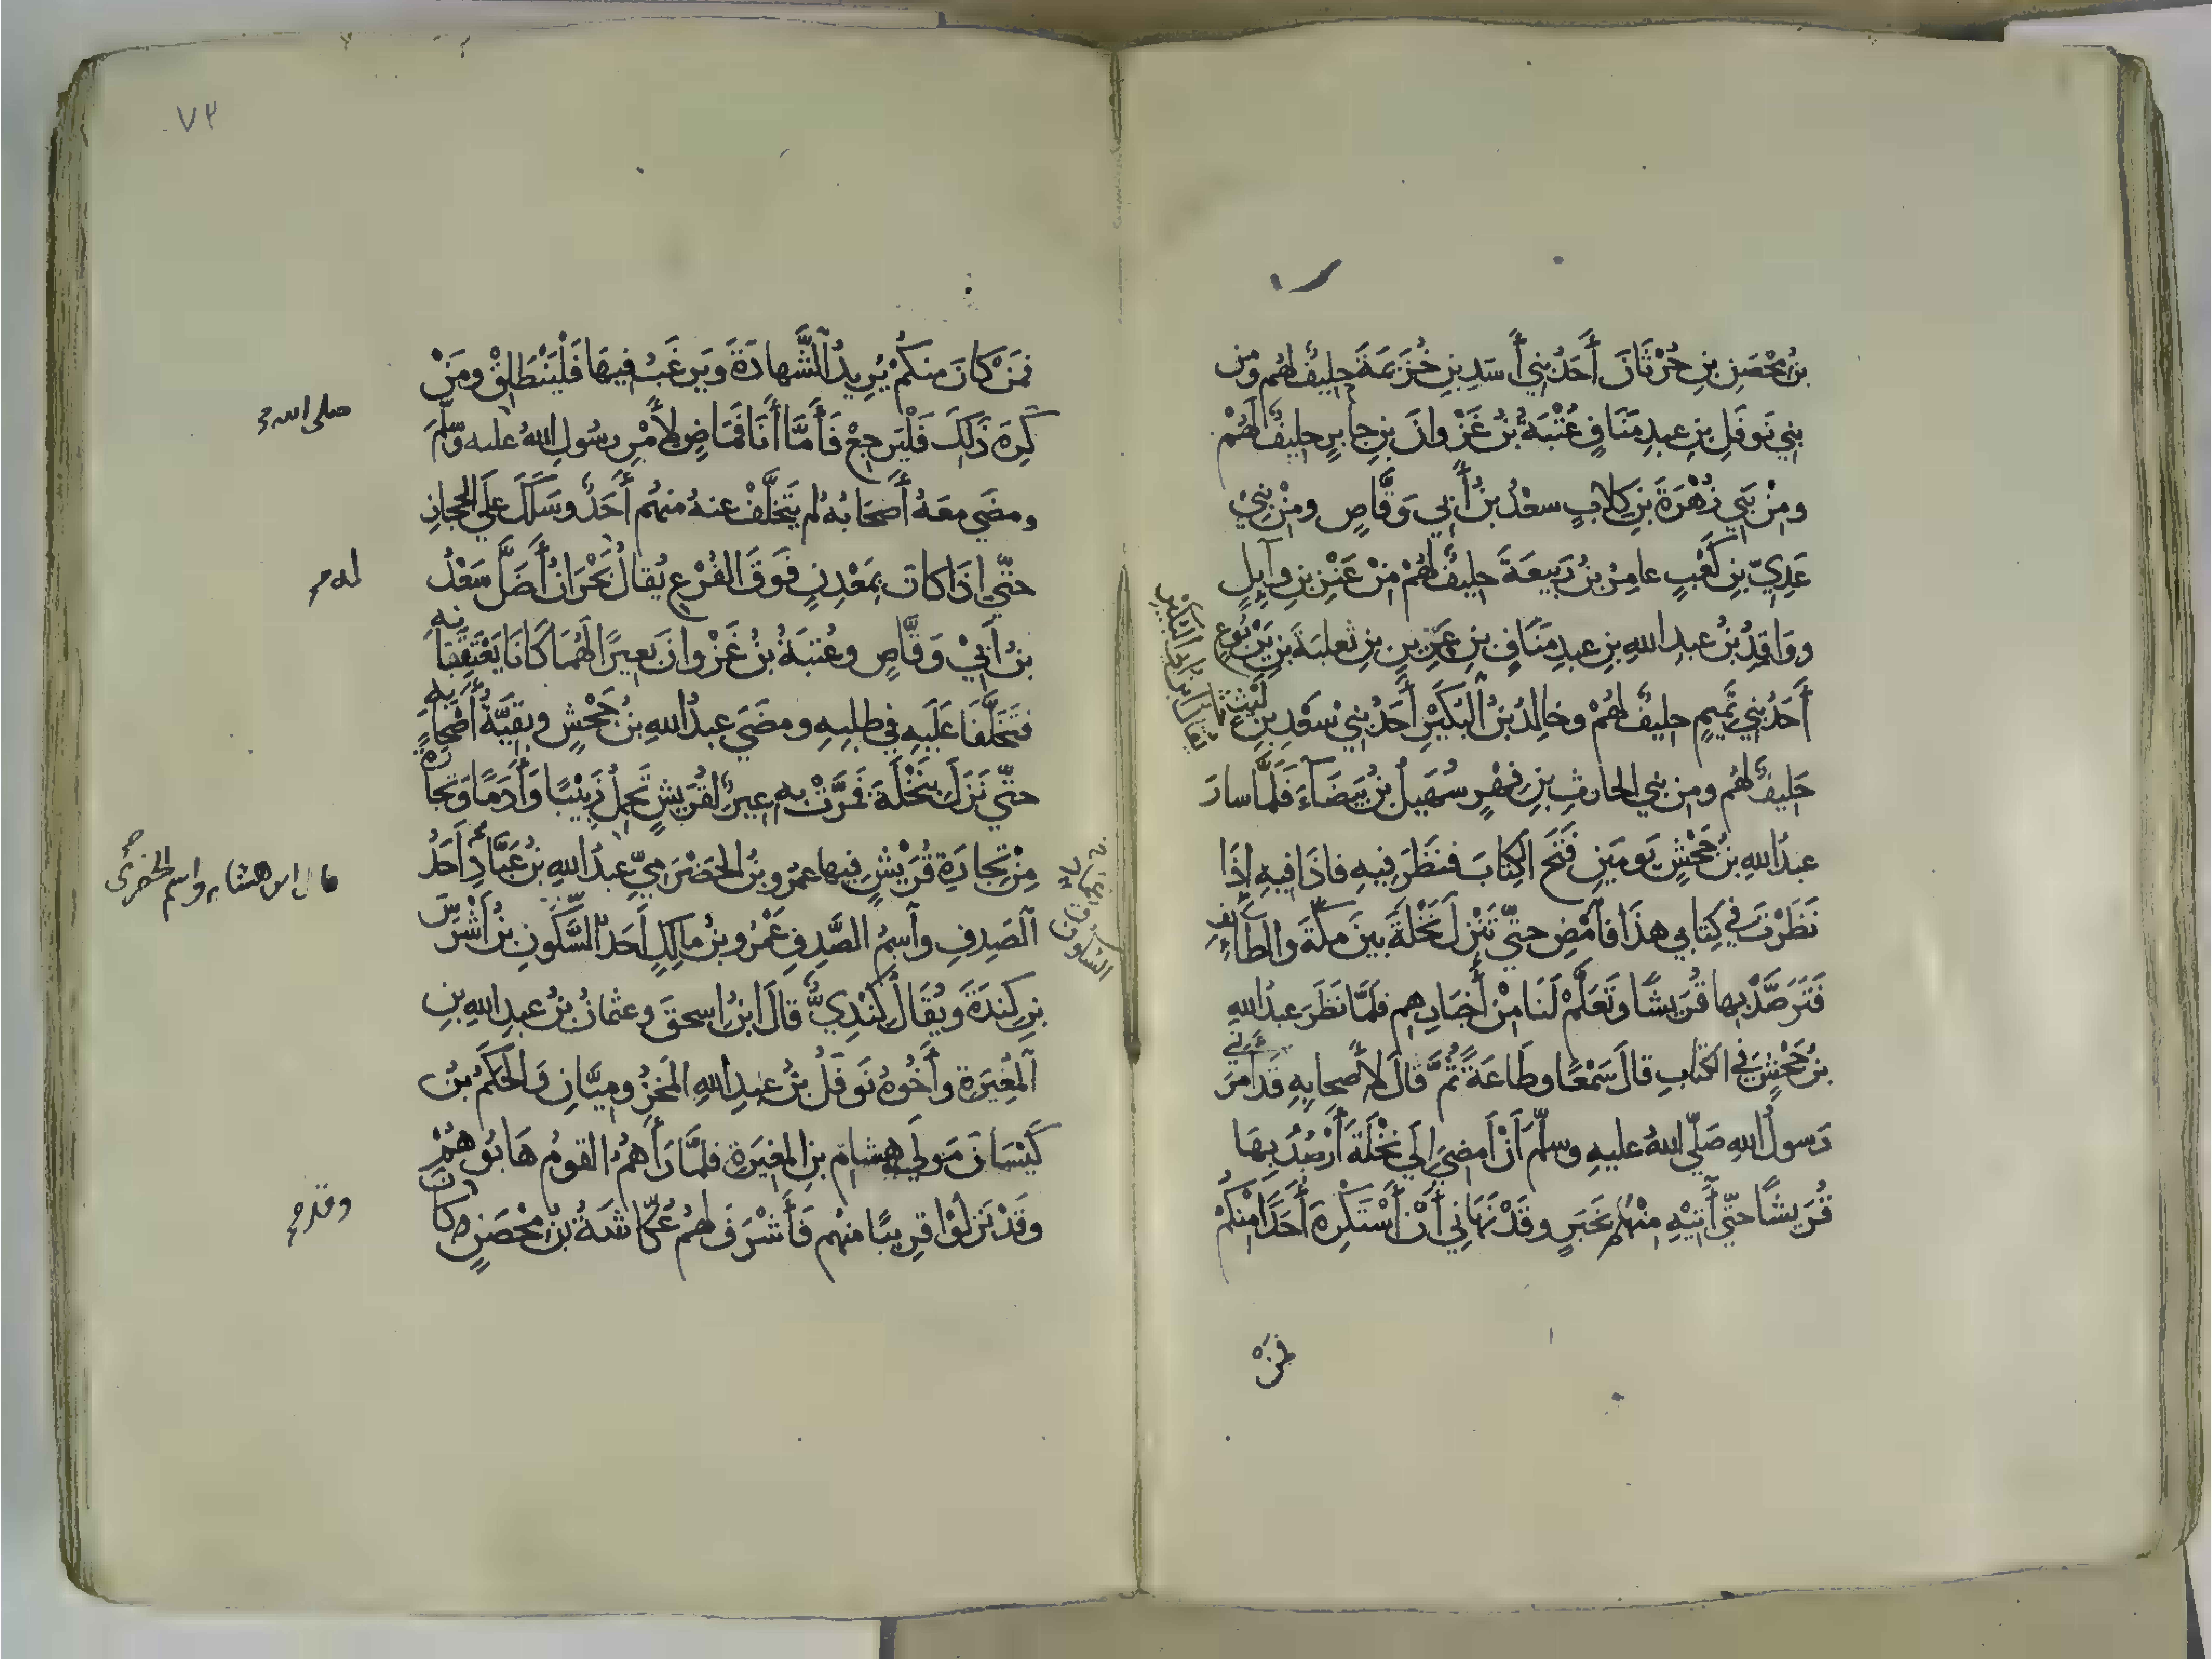 بنُ مِحْصَنِ بنِ حُرْثَانَ أَحَدُ بَنِي أَسَدِ بنِ خُزَيمَةَ حَلِيفٌ لهُم ومن
بَنِي نَوفَلِ بنِ عبدِ مَنَافٍ عُتْبَةُ بنُ غَزْوانَ بنِ جابِرٍ حليفٌ لَهُمْ
ومِنْ بَنِي زُهْرَةَ بنِ كِلابٍ سعْدُ بنُ أَبِي وَقَّاصٍ ومِنْ بَنِي
عَدِيّ بنِ كَعْبٍ عامِرُ بنُ رَبِيعَةَ حليفٌ لَهُمْ مِنْ عَنْزِ بنِ وآيِلٍ
ووَاقِدُ بنُ عبدِ اللهِ بنِ عبدِ مَنَافٍ بنِ عَرِينِ بنِ ثعلبَةَ بنِ يَرْبُوعٍ
أَحَدُ بَنِي تَمِيمٍ حليفٌ لهُمْ وخالِدُ بنُ البُكَيْرِ أَحَدُ بَنِي سَعْدِ بنِ لَيْثٍ
حَلِيفٌ لهُم ومن بني الحارثِ بنِ فِهْرٍ سُهَيلُ بنُ بَيضَآءَ فَلَمَّا سارَ
عبدُ اللهِ بنُ جَحْشٍ يَومَينِ فَتَحَ الكِتابَ فنَظَرَ فِيهِ فاذَا فِيهِ إِذَا
نَظَرْتَ في كِتابي هذَا فآمْضِ حتّي تَنْزِلَ نَخْلَةَ بينَ مكّةَ والطآئِفِ
فَتَرَصَّدْ بها قُرَيشًا وتَعَلَّمْ لَنَا مِنْ أَخبَارِهِم فلَمَّا نَظَرَ عبدُ اللهِ
بنُ جَحْشٍ في الكتابِ قالَ سَمْعًا وطَاعَةً ثُمَّ قالَ لأَصحابِهِ قَد أَمَرَنِي
رَسولُ اللهِ صَلّي اللهُ عليهِ وسلّمَ أَنْ أَمضِيَ إِلَي نَخْلَةَ أَرْصُدُ بِهَا
قُرَيشًا حتّي آتِيَهِ مِنْهُم بخَبَرٍ وقَدْ نَهَانِي أَنْ أَسْتَكرِهَ أَحَدًا مِنْكُمْ
فمَنْ
٧٣
فمَنْ كانَ منكُمْ يُرِيدُ الشَّهادَةَ ويَرغَبُ فِيهَا فَلْيَنْطَلِقْ ومَنْ
كَرِهَ ذَلكَ فَلْيَرجِعْ فَأَمَّا أَنَا فَمَاضٍ لأَمْرِ رسُولِ اللهُ عليه وسلّمَ
صلى الله
ومضَي معَهُ أَصحَابُهُ لم يَتَخلَّفْ عنهُ منهُم أَحَدٌ وسَلَكَ علَي الحجازِ
حتّي اذَا كانَ بِمَعْدِنٍ فَوقَ الفُرْعِ يُقالُ بَحْرَانُ أَضَلَّ سَعْدُ
له
بنُ أَبِيْ وَقَّاصٍ وعُتبَةُ بنُ غَزْوانَ بَعِيرًا لَهُمَا كَانَا يَعْتَقِبَانِهِ
فتَخَلَّفَا عَلَيهِ في طلبِهِ ومضَي عبدُ اللهِ بنُ جَحْشٍ وبقيَّةُ أَصْحابِهِ
حتّي نَزَلَ بنَخْلَةَ فمَرَّتْ بهِ عِيرٌ لقُرَيشٍ تَحمِلُ زَبِيْبًا وأَدَمًا وتِجارَةً
مِنْ تِجارَةِ قُرَيْشٍ فيها عمرُو بنُ الحَضْرَمِيِّ عبدُ اللهِ بنُ عَبَّادٍ أَحَدُ
قال ابن هشام واسم الحضرمى
الصَدِفِ وآسمُ الصَّدِفِ عَمْرُو بنُ مالكٍ أَحَدُ السَّكُونِ بنُ أَشْرَسَ
بنِ كِندَةَ ويُقَالُ كِنْدِيٌّ قالَ ابنُ اسحقَ وعثمانُ بنُ عبدِ اللهِ بنِ
المُغِيرَةِ وأَخُوهُ نَوفَلُ بنُ عبدِ اللهِ المَخزُوميَّانِ والحَكَمُ بنُ
كَيْسَانَ مَولَي هِشامِ بنِ المغيَرةِ فلمَّا رَأَهُمُ القومُ هَابُوهُمْ
وقَدْ نَزلُوْا قرِيبًا منهُم فَأَشْرَفَ لهُم عُكّاشَةُ بنُ مِحْصَنٍ وكانَ
وقد